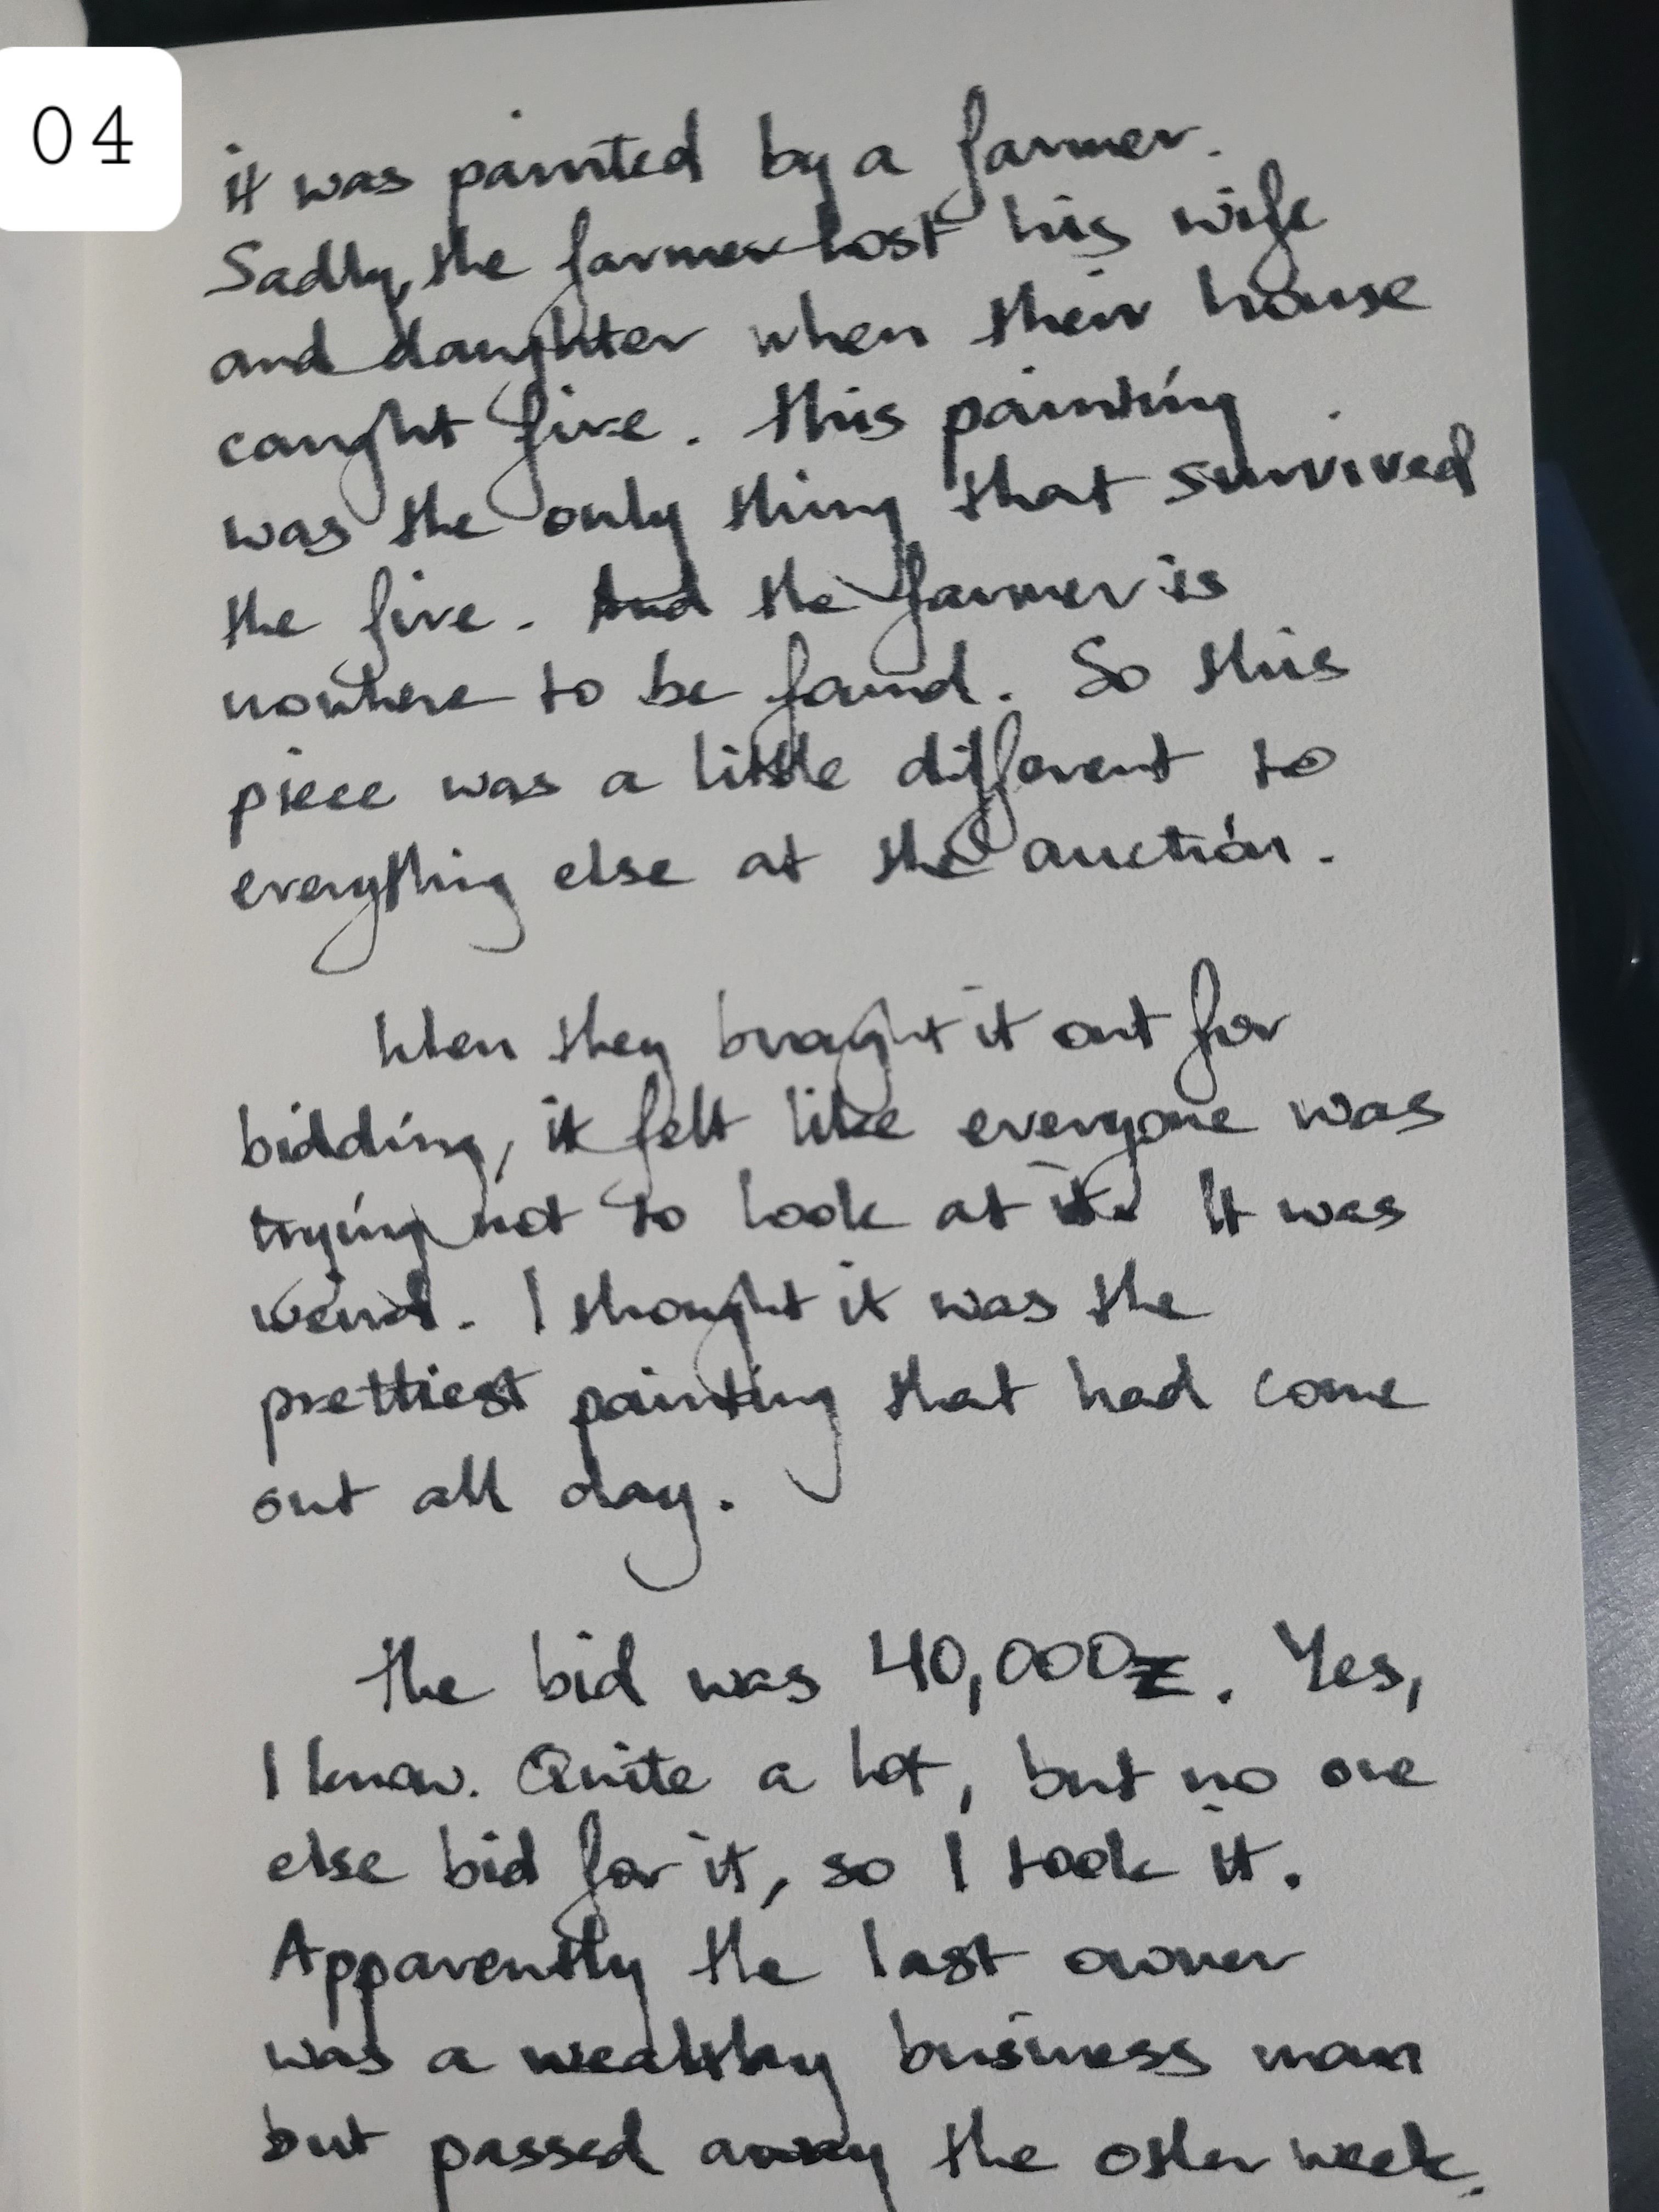 04
it was painted by a farmer.
Sadly, the farmer lost his wife
and daughter when their house
caught fire. This painting
was the only thing that survived
the fire. And the farmer is
nowhere to be found. So this
piece was a little different to
everything else at the auction.
When they brought it out for
bidding, it felt like everyone was
trying not to look at it. It was
weird. I thought it was the
prettiest painting that had come
out all day.
The bid was 40,000Z. Yes,
I know. Quite a lot, but no one
else bid for it, so I took it.
Apparently the last owner
was a wealthy business man
but passed away the other week.